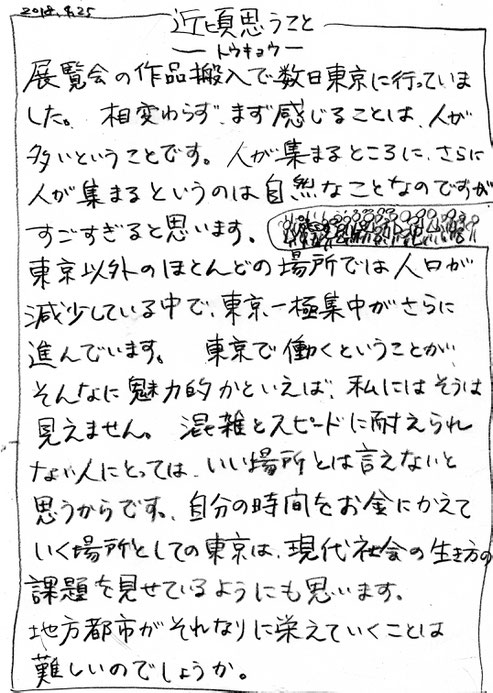 2018.9.25
近頃思うこと
—トウキョウ—
展覧会の作品搬入で数日東京に行っていま
した。相変わらず、まず感じることは、人が
多いということです。人が集まるところに、さらに
人が集まるというのは自然なことなのですが
すごすぎると思います。
東京以外のほとんどの場所では人口が
減少している中で、東京一極集中がさらに
進んでいます。 東京で働くということが、
そんなに魅力的かといえば、私にはそうは
見えません。 混雑とスピードに耐えられ
ない人にとっては、いい場所とは言えないと
思うからです。自分の時間をお金にかえて
いく場所としての東京は、現代社会の生き方の
課題を見せているようにも思います。
地方都市がそれなりに栄えていくことは
難しいのでしょうか。